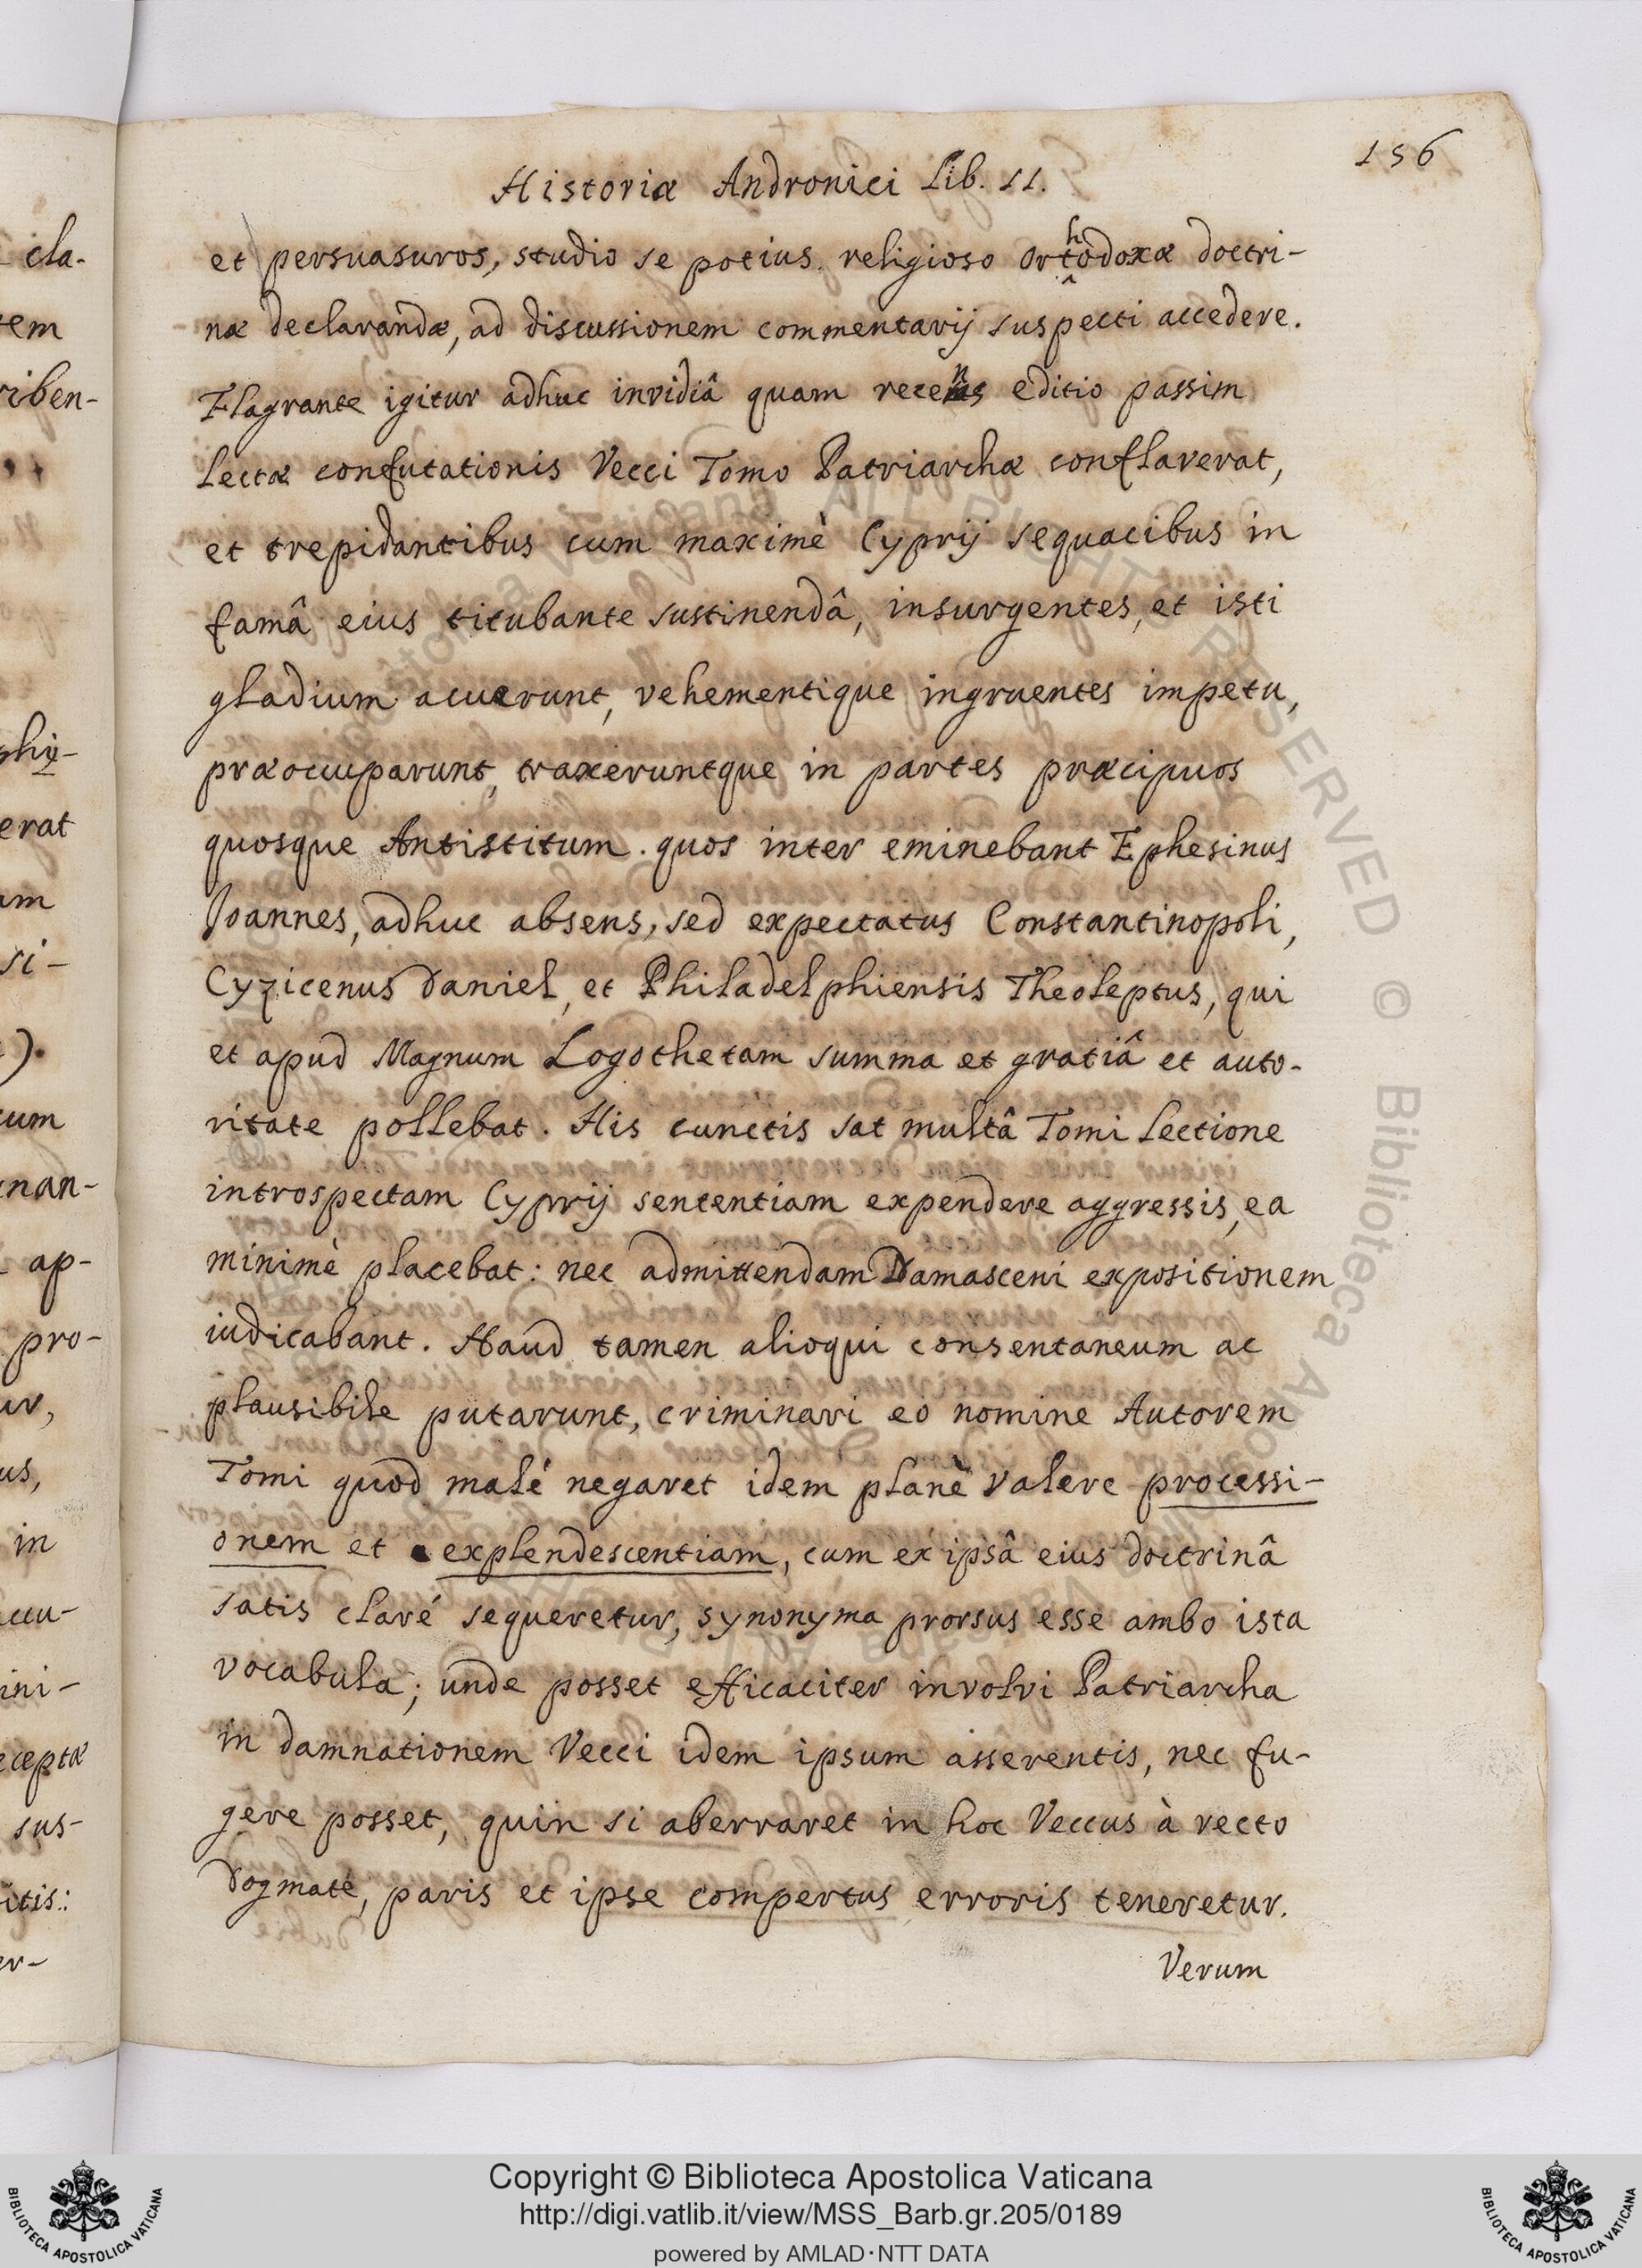 156
Historiæ Andronici Lib. II.
et persuasuros, studio se potius religioso orthodoxæ doctri-
næ declarandæ, ad discussionem commentarij suspecti accedere.
Flagrante igitur adhuc invidiâ quam recens editio passim
lectæ confutationis Vecci Tomo Patriarchæ conflaverat,
et trepidantibus cum maximè Cyprij sequacibus in
famâ eius titubante sustinendâ, insurgentes, et isti
gladium acuerunt, vehementique ingruentes impetu,
præoccuparunt, traxeruntque in partes præcipuos
quosque Antistitum. quos inter eminebant Ephesinus
Joannes, adhuc absens, sed expectatus Constantinopoli,
Cyzicenus Daniel, et Philadelphiensis Theoleptus, qui
et apud Magnum Logothetam summa et gratiâ et auto-
ritate pollebat. His cunctis sat multâ Tomi lectione
introspectam Cyprij sententiam expendere aggressis, ea
minimè placebat: nec admittendam Damasceni expositionem
iudicabant. Haud tamen alioqui consentaneum ac
plausibile putarunt, criminari eo nomine Autorem
Tomi quod malé negaret idem planè valere processi-
onem et explendescentiam, cum ex ipsâ eius doctrinâ
satis claré sequeretur, synonyma prorsus esse ambo ista
vocabula; unde posset efficaciter involvi Patriarcha
in damnationem Vecci idem ipsum asserentis, nec fu-
gere posset, quin si aberraret in hoc Veccus à recto
dogmate, paris et ipse compertus erroris teneretur.
Verum
cla-
tem
riben-
phię-
erat
am
si-
cum
nan-
ap-
pro-
ur,
us,
in
ccu-
ini-
cceptæ
sus-
itis:
er-
Copyright © Biblioteca Apostolica Vaticana
http://digi.vatlib.it/view/MSS_Barb.gr.205/0189
powered by AMLAD·NTT DATA
BIBLIOTECA APOSTOLICA VATICANA
BIBLIOTECA APOSTOLICA VATICANA